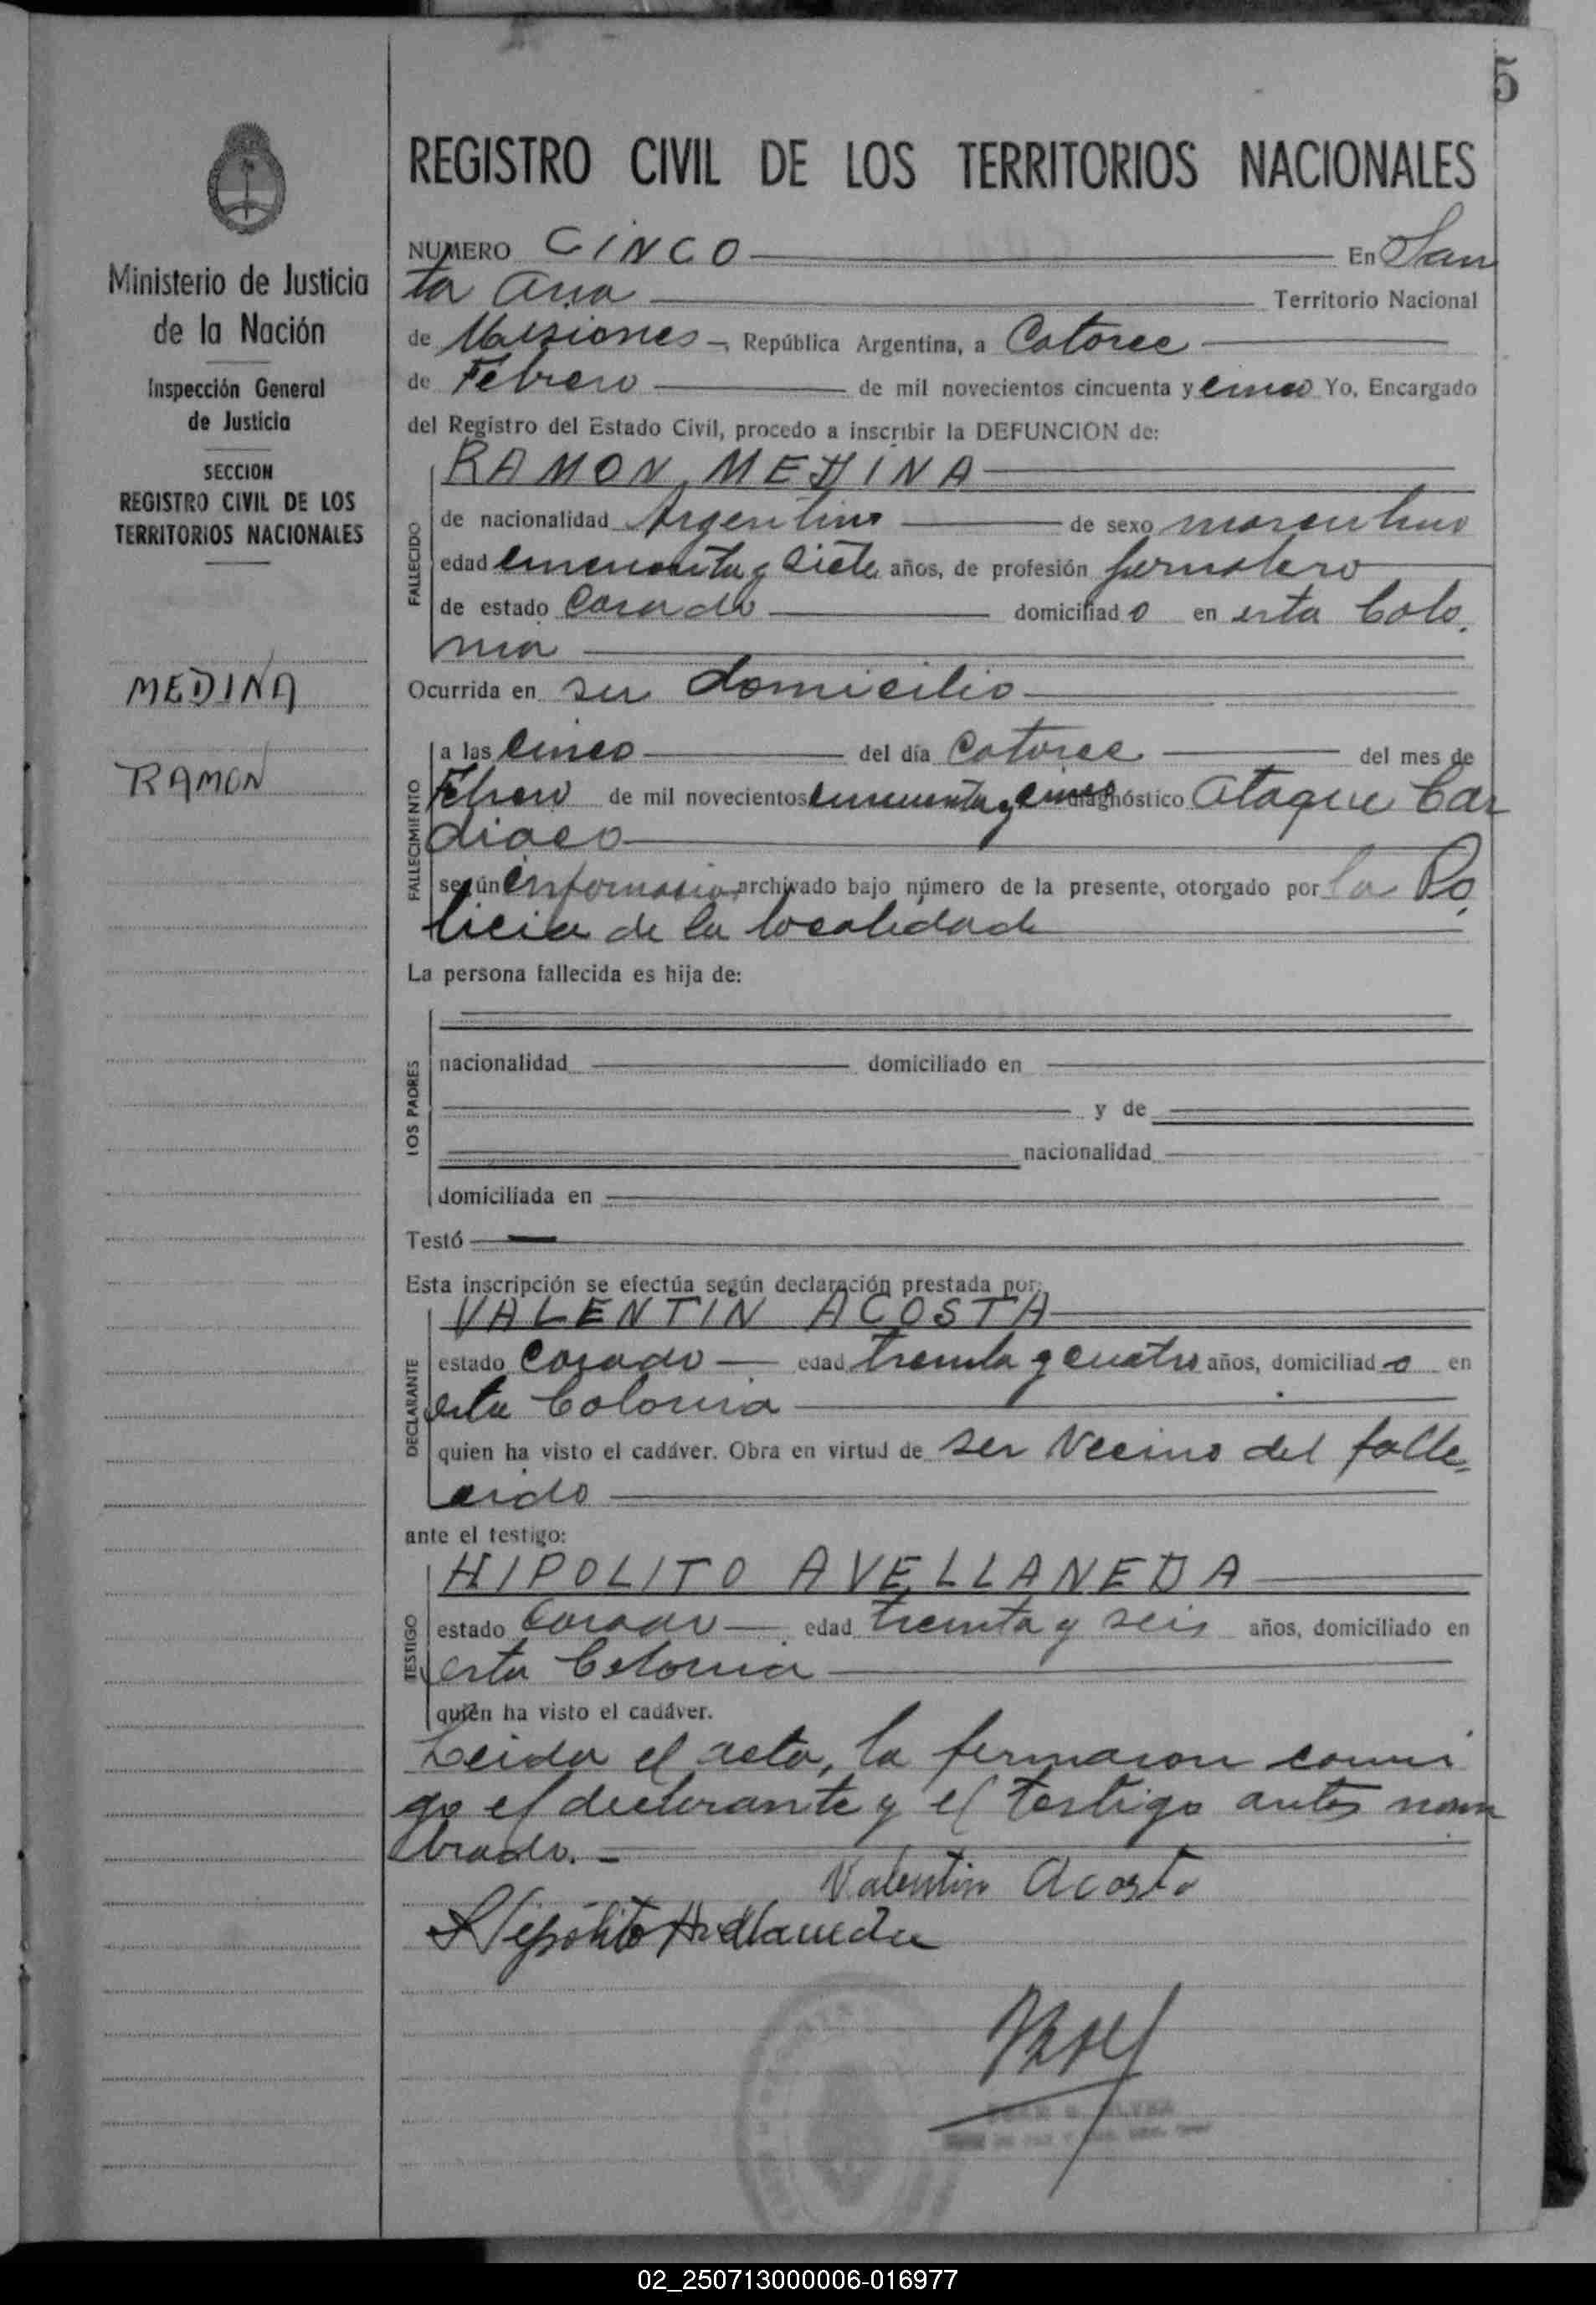 5
REGISTRO CIVIL DE LOS TERRITORIOS NACIONALES
Ministerio de Justicia
de la Nación
Inspección General
de Justicia
SECCION
REGISTRO CIVIL DE LOS
TERRITORIOS NACIONALES
MEDINA
RAMON
NUMERO CINCO En San
ta Ana Territorio Nacional
de Misiones -, República Argentina, a Catorce
de Febrero de mil novecientos cincuenta y cinco Yo, Encargado
del Registro del Estado Civil, procedo a inscribir la DEFUNCION de:
FALLECIDO
RAMON MEDINA
de nacionalidad Argentino de sexo masculino
edad cincuenta y siete años, de profesión jornalero
de estado Casado domiciliado en esta Colo.
nia
Ocurrida en su domicilio
FALLECIMIENTO
a las cinco del día Catorce del mes de
Febrero de mil novecientos cincuenta y cinco diagnóstico Ataque Car
diaco
según informacion archivado bajo número de la presente, otorgado por la Po
licia de la localidad
La persona fallecida es hija de:
LOS PADRES
nacionalidad domiciliado en
y de
nacionalidad
domiciliada en
Testó
Esta inscripción se efectúa según declaración prestada por:
DECLARANTE
VALENTIN ACOSTA
estado Casado edad treinta y cuatro años, domiciliado en
esta Colonia
quien ha visto el cadáver. Obra en virtud de ser Vecino del falle
cido
ante el testigo:
TESTIGO
HIPOLITO AVELLANEDA
estado Casado edad treinta y seis años, domiciliado en
esta Colonia
quién ha visto el cadáver.
Leida el acta, la firmaron conmi
go el declarante y el testigo antes nom
brado.-
Valentin Acosta
Hipólito Avellaneda
02_250713000006-016977